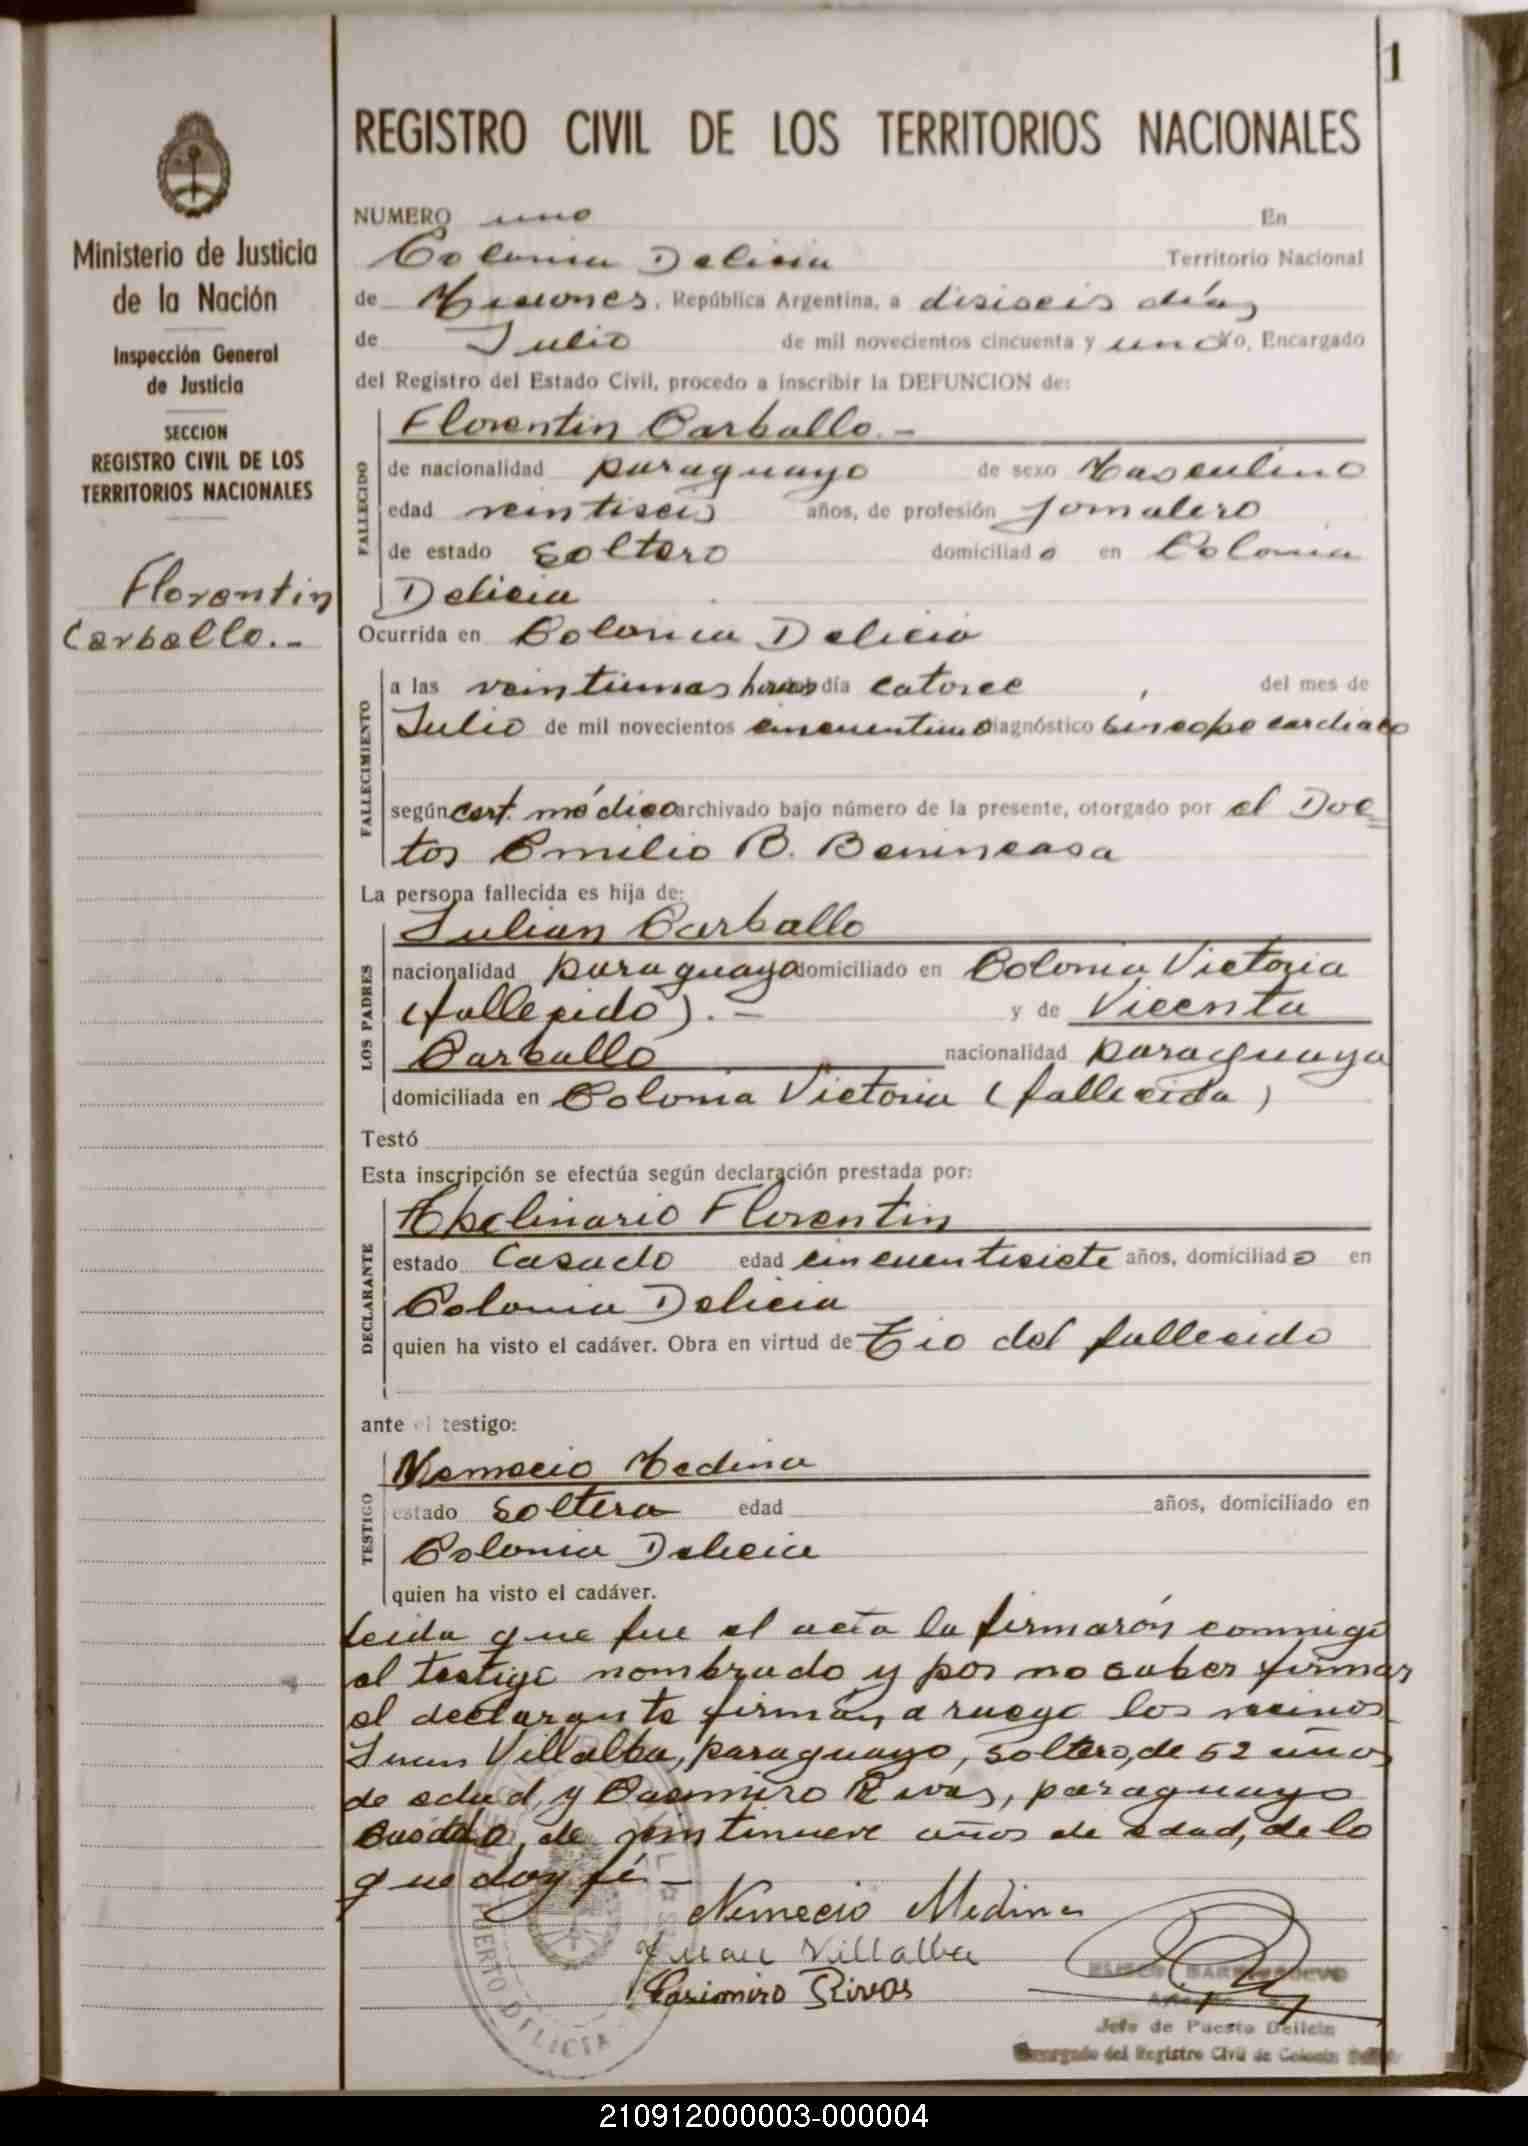 1
Ministerio de Justicia
de la Nación
Inspección General
de Justicia
SECCION
REGISTRO CIVIL DE LOS
TERRITORIOS NACIONALES
Florentin
Carballo.-
REGISTRO CIVIL DE LOS TERRITORIOS NACIONALES
NUMERO uno En
Colonia Delicia Territorio Nacional
de Misiones, República Argentina, a disiseis días
de Julio de mil novecientos cincuenta y uno Yo, Encargado
del Registro del Estado Civil, procedo a inscribir la DEFUNCION de:
FALLECIDO
Florentin Carballo.-
de nacionalidad paraguayo de sexo Masculino
edad veintiseis años, de profesión jornalero
de estado soltero domiciliado en Colonia
Delicia
Ocurrida en Colonia Delicia
FALLECIMIENTO
a las veintiunas horas día catorce, del mes de
Julio de mil novecientos cincuentiuno diagnóstico síncope cardiaco
según cert. médico archivado bajo número de la presente, otorgado por el Doc=
tor Emilio B. Benincasa
La persona fallecida es hija de:
LOS PADRES
Julian Carballo
nacionalidad paraguayo domiciliado en Colonia Victoria
(fallecido).- y de Vicenta
Carballo nacionalidad paraguaya
domiciliada en Colonia Victoria (fallecida)
Testó
Esta inscripción se efectúa según declaración prestada por:
DECLARANTE
Apolinario Florentin
estado Casado edad cincuentisiete años, domiciliado en
Colonia Delicia
quien ha visto el cadáver. Obra en virtud de Tio del fallecido
ante el testigo:
TESTIGO
Nemecio Medina
estado soltero edad años, domiciliado en
Colonia Delicia
quien ha visto el cadáver.
leida que fue el acta la firmarón conmigo
el testigo nombrado y por no saber firmar
el declarante firmán a ruego los vecinos
Juan Villalba, paraguayo, soltero, de 52 años
de edad, y Casimiro Rivas, paraguayo
casado, de veintinueve años de edad, de lo
que doy fé.-
Nemecio Medina
Juan Villalba
Casimiro Rivas
PUERTO DELICIA
Jefe de Puesto Delicia
Encargado del Registro Civil de Colonia
210912000003-000004